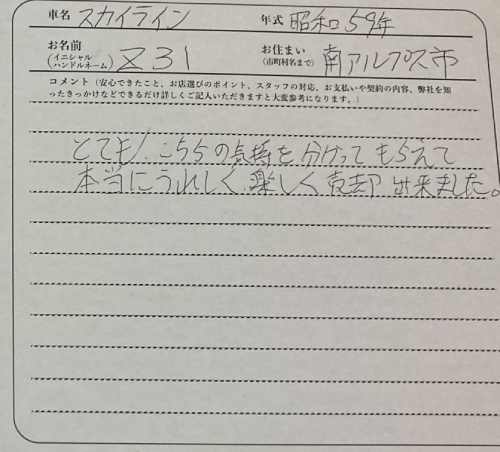 車名 スカイライン 年式 昭和59年
お名前 (イニシャル ハンドルネーム) Z31 お住まい (市町村名まで) 南アルプス市
コメント（安心できたこと、お店選びのポイント、スタッフの対応、お支払いや契約の内容、弊社を知
ったきっかけなどできるだけ詳しくご記入いただきますと大変参考になります。）
とても！こちらの気持を分けってもらえて
本当にうれしく、楽しく売却出来ました。